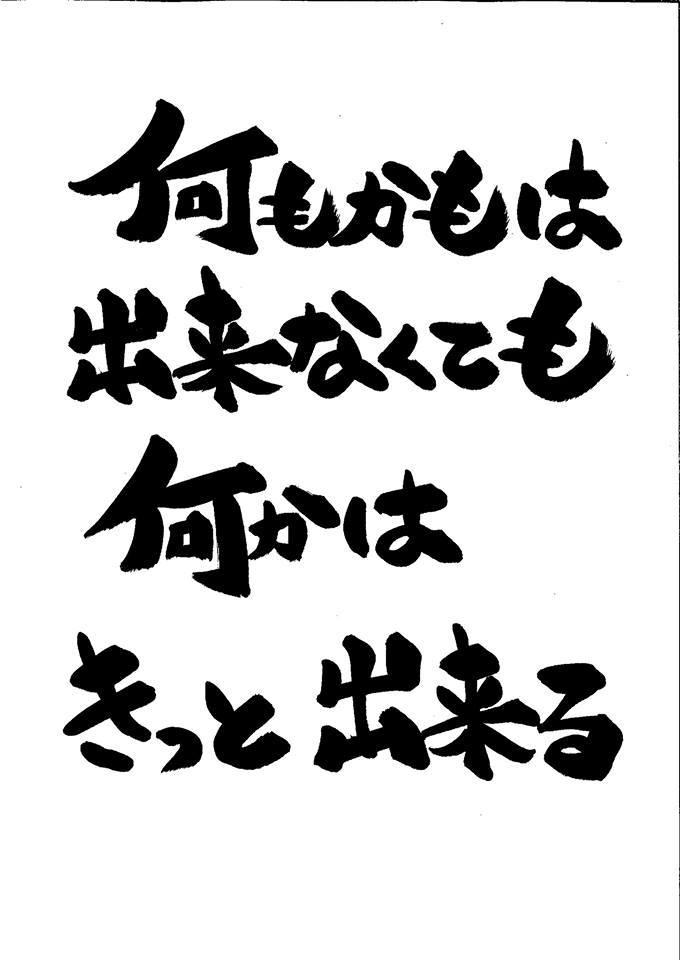 何もかもは
出来なくても
何かは
きっと出来る